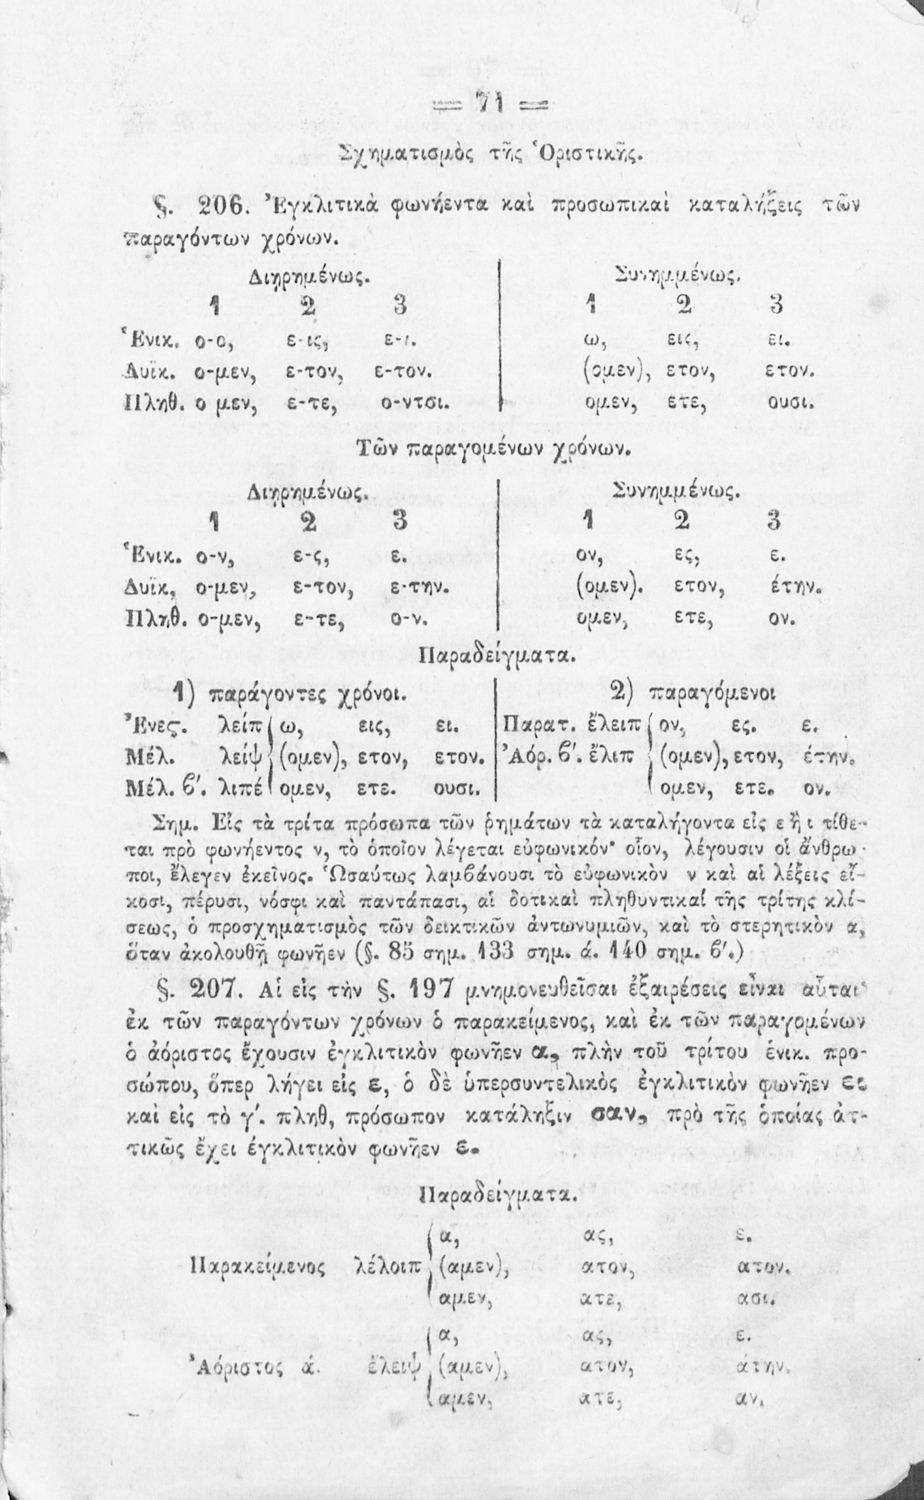 = 71 =
Σχηματισμὸς τῆς Ὁριστικῆς.
§. 206. Ἐγκλιτικὰ φωνήεντα καὶ προσωπικαὶ καταλήξεις τῶν
παραγόντων χρόνων.
Διῃρημένως. Συνημμένως.
1 2 3 1 2 3
Ἑνικ. ο-ο, ε-ις, ε-ι. ω, εις, ει.
Δυϊκ. ο-μεν, ε-τον, ε-τον. (ομεν), ετον, ετον.
Πληθ. ο μεν, ε-τε, ο-ντσι. ομεν, ετε, ουσι.
Τῶν παραγομένων χρόνων.
Διῃρημένως. Συνημμένως.
1 2 3 1 2 3
Ἑνικ. ο-ν, ε-ς, ε. ον, ες, ε.
Δυϊκ, ο-μεν, ε-τον, ε-την. (ομεν). ετον, έτην.
Πληθ. ο-μεν, ε-τε, ο-ν. ομεν, ετε, ον.
Παραδείγματα.
1) παράγοντες χρόνοι. 2) παραγόμενοι
Ἐνες. λείπ ω, εις, ει. Παρατ. ἔλειπ ον, ες. ε.
Μέλ. λείψ (ομεν), ετον, ετον. Ἀόρ. β'. ἔλιπ (ομεν), ετον, έτην.
Μέλ. β'. λιπέ ομεν, ετε. ουσι. ομεν, ετε. ον.
Σημ. Εἰς τὰ τρίτα πρόσωπα τῶν ῥημάτων τὰ καταλήγοντα εἰς ε ἢ ι τίθε-
ται πρὸ φωνήεντος ν, τὸ ὁποῖον λέγεται εὐφωνικόν· οἷον, λέγουσιν οἱ ἄνθρω
ποι, ἔλεγεν ἐκεῖνος. Ὡσαύτως λαμβάνουσι τὸ εὐφωνικὸν ν καὶ αἱ λέξεις εἴ-
κοσι, πέρυσι, νόσφι καὶ παντάπασι, αἱ δοτικαὶ πληθυντικαί τῆς τρίτης κλί-
σεως, ὁ προσχηματισμὸς τῶν δεικτικῶν ἀντωνυμιῶν, καὶ τὸ στερητικὸν α,
ὅταν ἀκολουθῇ φωνῆεν (§. 85 σημ. 133 σημ. ά. 140 σημ. β'.)
§. 207. Αἱ εἰς τὴν §. 197 μνημονευθεῖσαι ἐξαιρέσεις εἶναι αὗται
ἐκ τῶν παραγόντων χρόνων ὁ παρακείμενος, καὶ ἐκ τῶν παραγομένων
ὁ ἀόριστος ἔχουσιν ἐγκλιτικὸν φωνῆεν α, πλὴν τοῦ τρίτου ἑνικ. προ-
σώπου, ὅπερ λήγει εἰς ε, ὁ δὲ ὑπερσυντελικὸς ἐγκλιτικὸν φωνῆεν ει
καὶ εἰς τὸ γ'. πληθ, πρόσωπον κατάληξιν σαν, πρὸ τῆς ὁποίας ἀτ-
τικῶς ἔχει ἐγκλιτικὸν φωνῆεν ε.
Παραδείγματα.
α, ας, ε.
Παρακείμενος λέλοιπ (αμεν), ατον, ατον.
αμεν, ατε, ασι.
α, ας, ε.
Ἀόριστος ά. ἔλειψ (αμεν), ατον, άτην.
αμεν, ατε, αν.